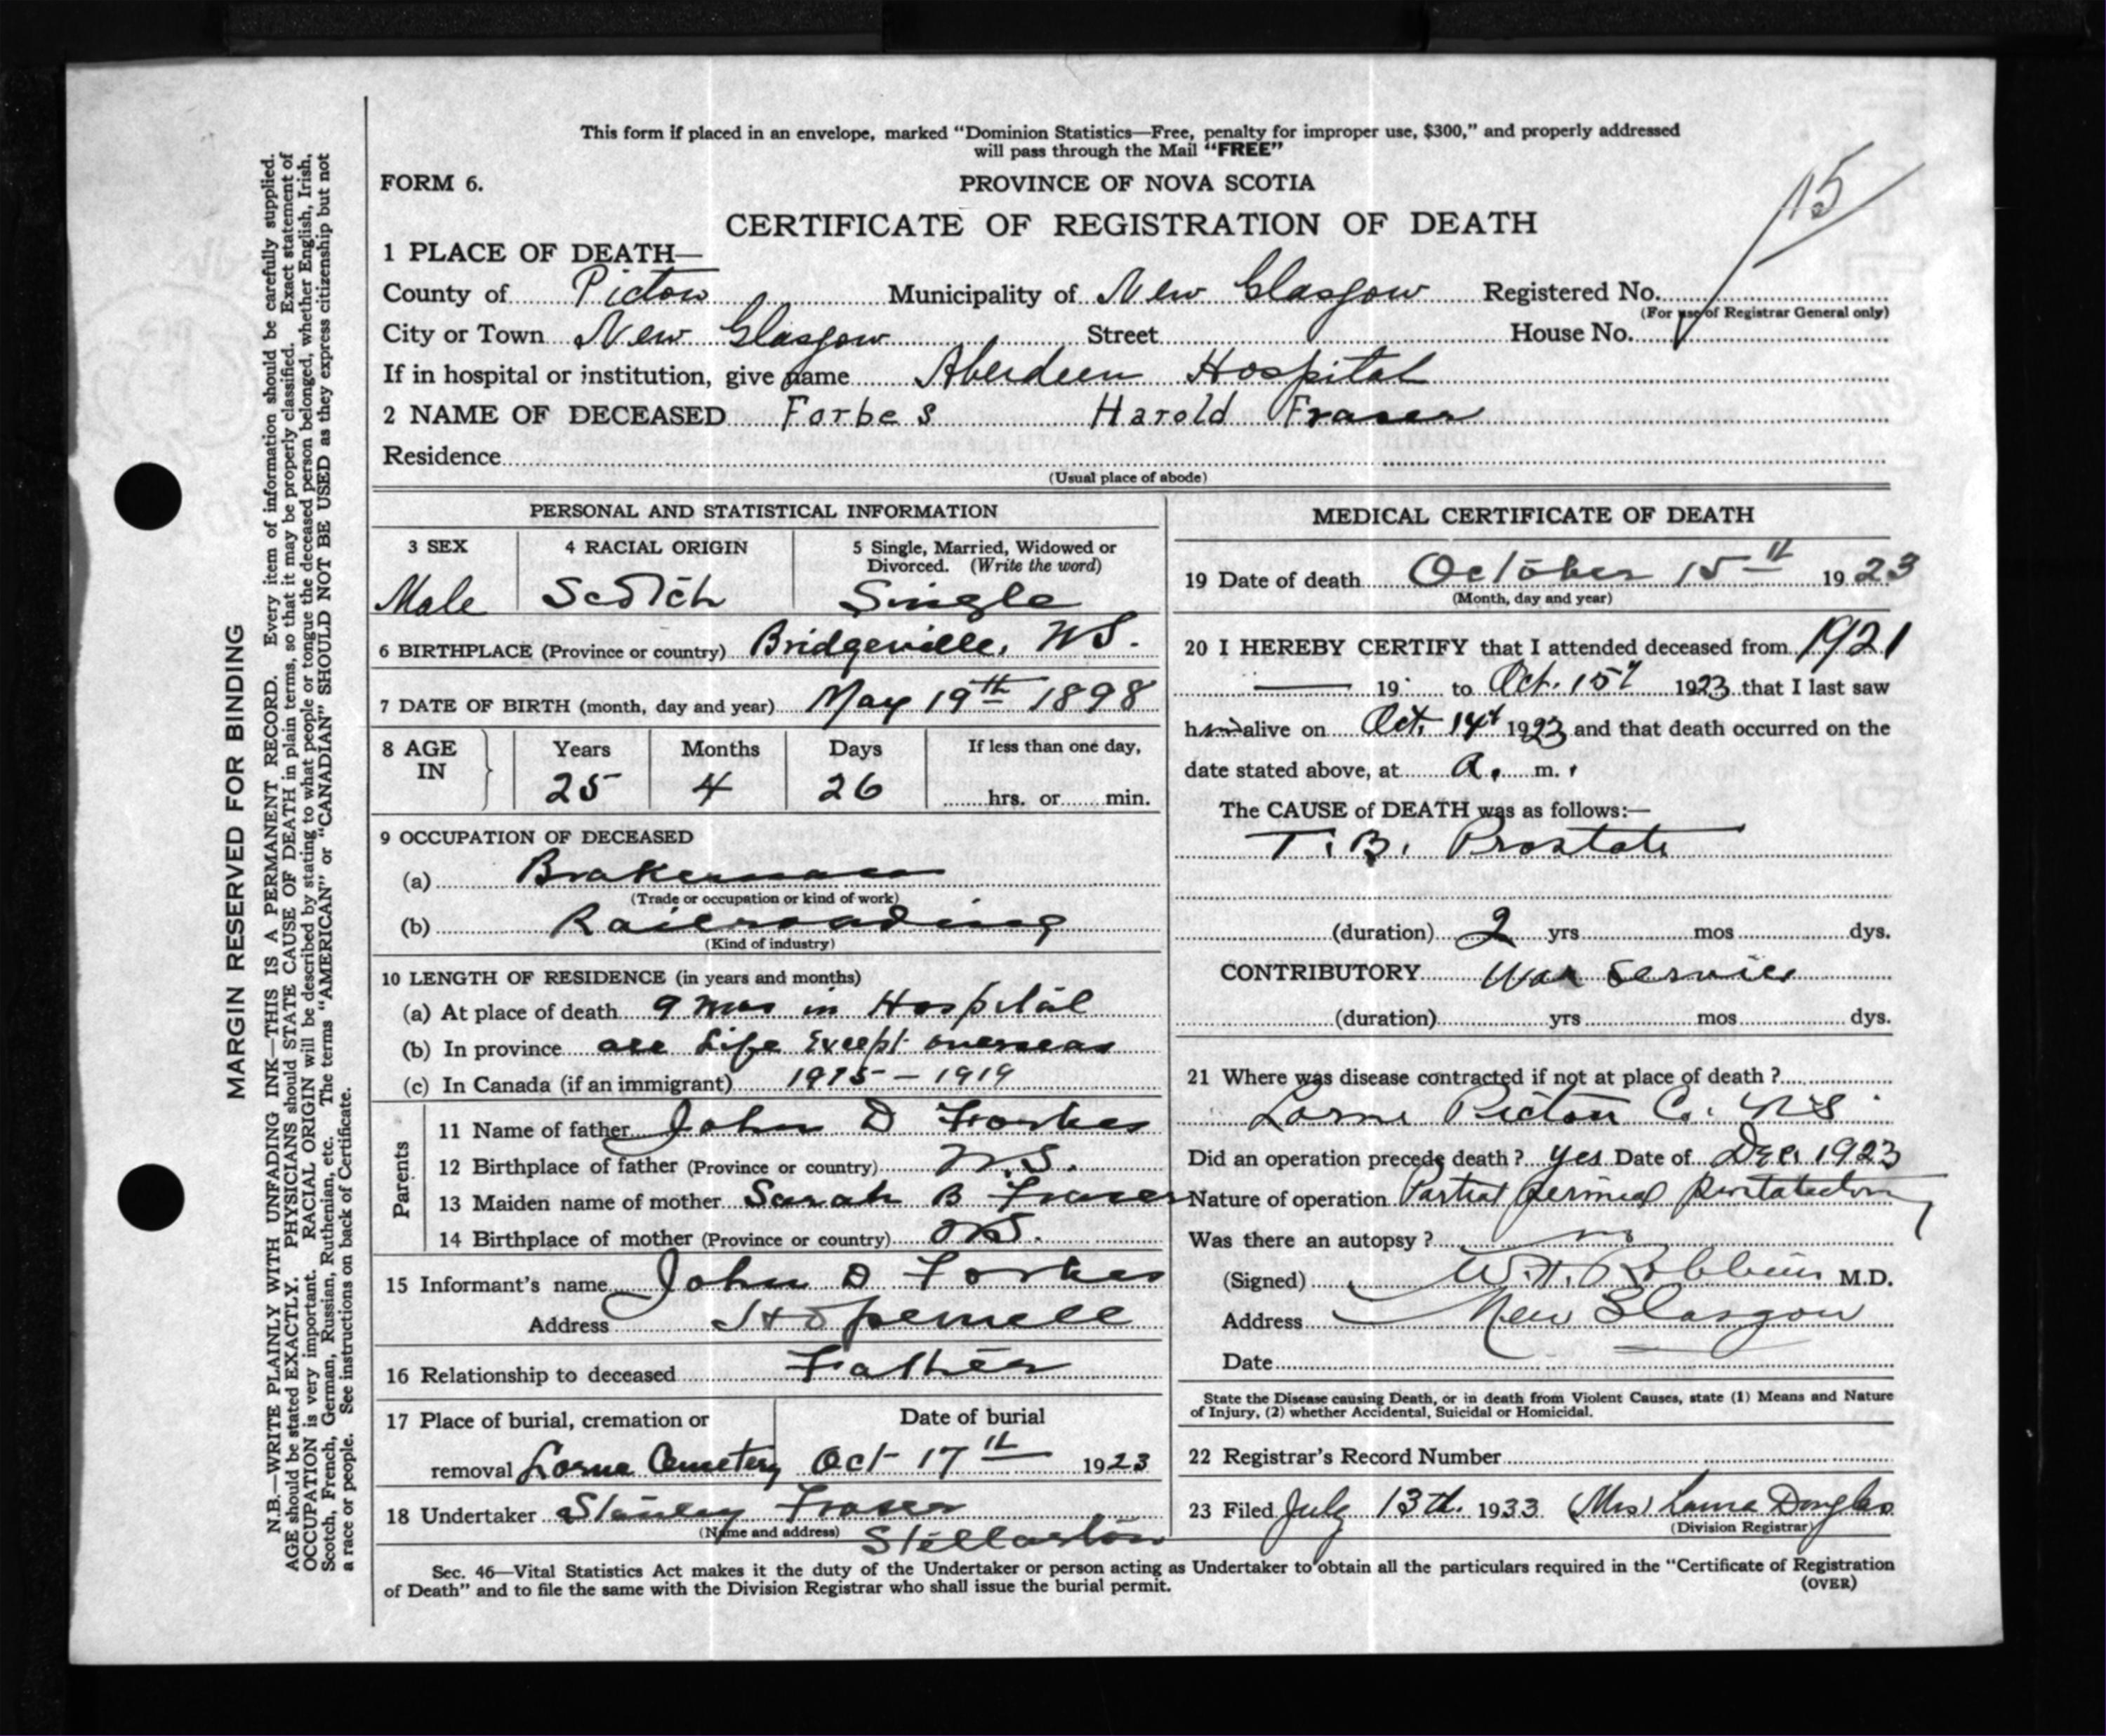 This form if placed in an envelope, marked "Dominion Statistics—Free, penalty for improper use, $300," and properly addressed
will pass through the Mail "FREE"
FORM 6.
PROVINCE OF NOVA SCOTIA
115
CERTIFICATE OF REGISTRATION OF DEATH
1 PLACE OF DEATH—
County of Pictou Municipality of New Glasgow Registered No.
(For use of Registrar General only)
City or Town New Glasgow Street House No.
If in hospital or institution, give name Aberdeen Hospital
2 NAME OF DECEASED Forbes Harold Fraser
Residence
(Usual place of abode)
PERSONAL AND STATISTICAL INFORMATION
3 SEX 4 RACIAL ORIGIN 5 Single, Married, Widowed or
Divorced. (Write the word)
Male Scotch Single
6 BIRTHPLACE (Province or country) Bridgeville, NS.
7 DATE OF BIRTH (month, day and year) May 19th 1898
8 AGE IN Years Months Days If less than one day,
25 4 26 hrs. or min.
9 OCCUPATION OF DECEASED
(a) Brakeman
(Trade or occupation or kind of work)
(b) Railroading
(Kind of industry)
10 LENGTH OF RESIDENCE (in years and months)
(a) At place of death 9 mos in Hospital
(b) In province all Life Except overseas
(c) In Canada (if an immigrant) 1915 – 1919
Parents
11 Name of father John D Forbes
12 Birthplace of father (Province or country) N.S.
13 Maiden name of mother Sarah B Fraser
14 Birthplace of mother (Province or country) NS.
15 Informant's name John D Forbes
Address Hopewell
16 Relationship to deceased Father
17 Place of burial, cremation or Date of burial
removal Lorne Cemetery Oct 17th 1923
18 Undertaker Stanley Fraser
(Name and address) Stellarton
MEDICAL CERTIFICATE OF DEATH
19 Date of death October 15th 1923
(Month, day and year)
20 I HEREBY CERTIFY that I attended deceased from 1921
— 19 to Oct. 15th 1923 that I last saw
him alive on Oct. 14th 1923 and that death occurred on the
date stated above, at a. m.
The CAUSE of DEATH was as follows:—
T.B. Prostate
(duration) 2 yrs mos dys.
CONTRIBUTORY War Service
(duration) yrs mos dys.
21 Where was disease contracted if not at place of death ?
Lorne Pictou Co. NS
Did an operation precede death ? yes Date of 1923
Nature of operation Partial perineal prostatectomy
Was there an autopsy ? no
(Signed) W.H. Robbins M.D.
Address New Glasgow
Date
State the Disease causing Death, or in death from Violent Causes, state (1) Means and Nature
of Injury, (2) whether Accidental, Suicidal or Homicidal.
22 Registrar's Record Number
23 Filed July 13th. 1933 (Mrs) Laura Douglas
(Division Registrar)
Sec. 46—Vital Statistics Act makes it the duty of the Undertaker or person acting as Undertaker to obtain all the particulars required in the "Certificate of Registration
of Death" and to file the same with the Division Registrar who shall issue the burial permit.
(OVER)
MARGIN RESERVED FOR BINDING
N.B.—WRITE PLAINLY WITH UNFADING INK—THIS IS A PERMANENT RECORD. Every item of information should be carefully supplied.
AGE should be stated EXACTLY. PHYSICIANS should STATE CAUSE OF DEATH in plain terms, so that it may be properly classified. Exact statement of
OCCUPATION is very important. RACIAL ORIGIN will be described by stating to what people or tongue the deceased person belonged, whether English, Irish,
Scotch, French, German, Russian, Ruthenian, etc. The terms "AMERICAN" or "CANADIAN" SHOULD NOT BE USED as they express citizenship but not
a race or people. See instructions on back of Certificate.